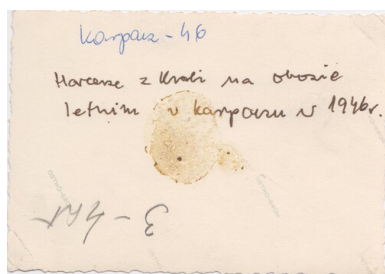 Karpacz - 46
Harcerze z Krobi na obozie
letnim w Karpaczu w 1946r.